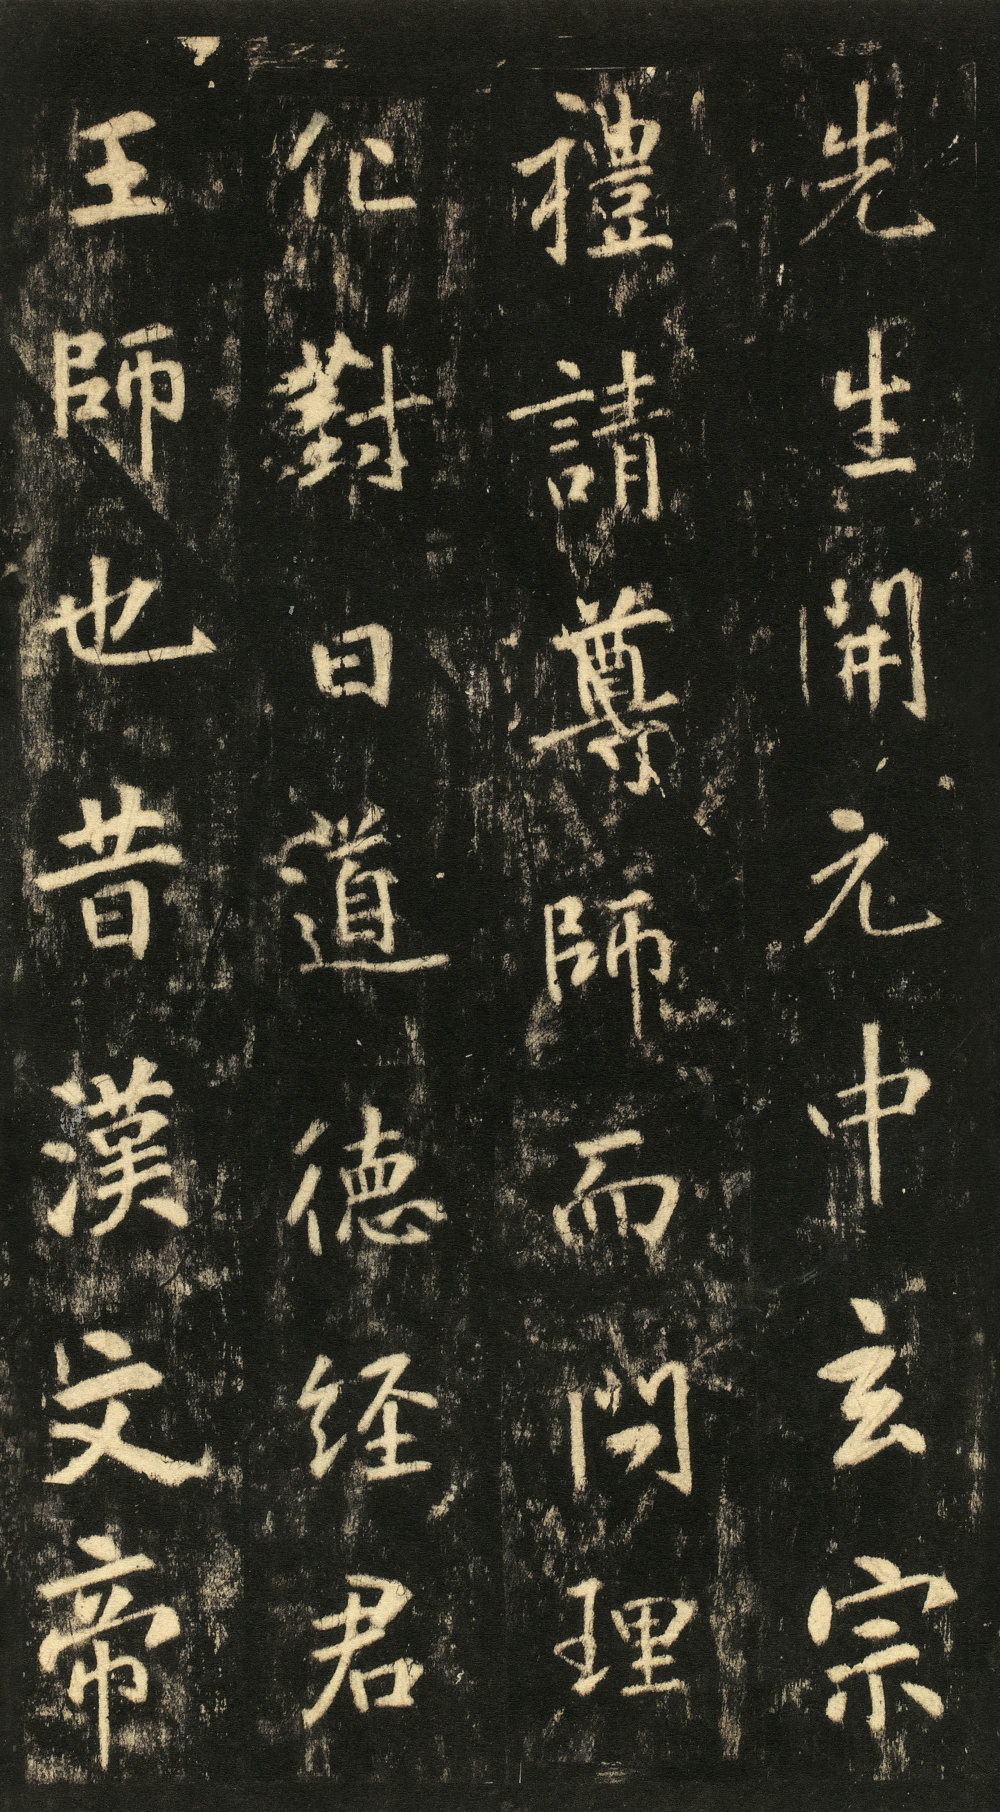 先生開元中玄宗
禮請尊師而問理
化對曰道德经君
王師也昔漢文帝